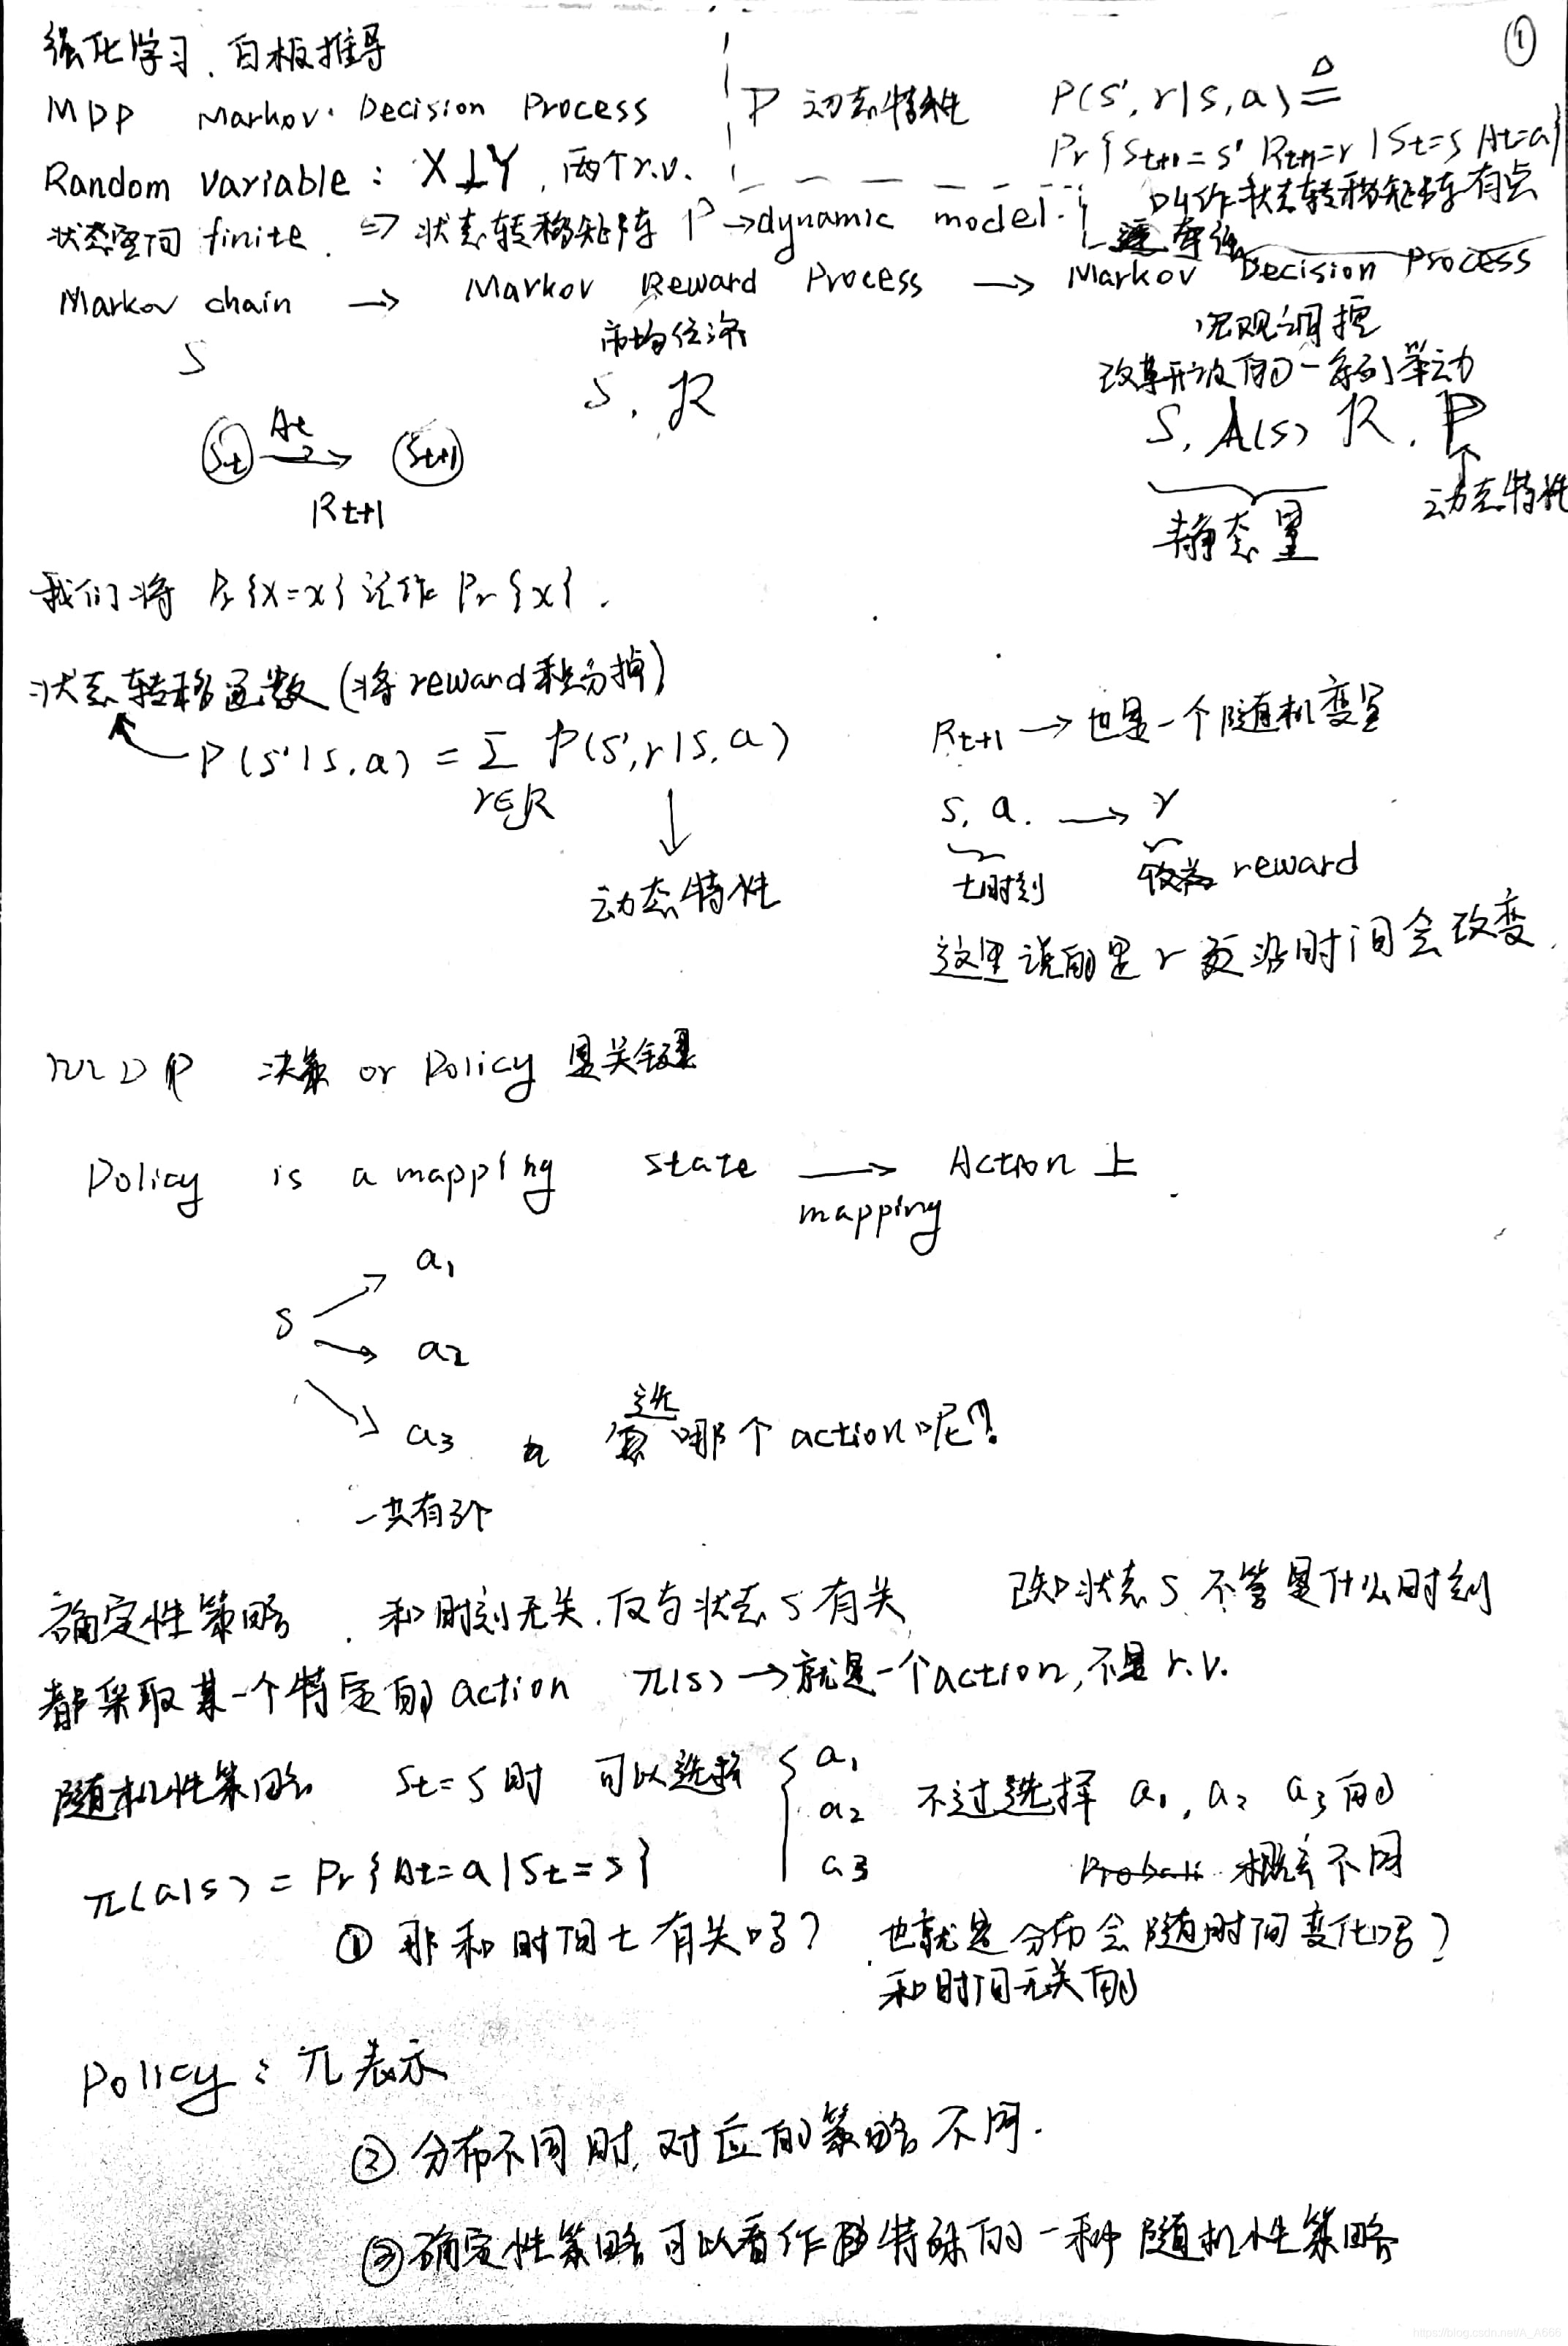 ①
强化学习. 白板推导
MDP Markov Decision Process
P 动态特性 P(s', r|s, a) ≜
Pr{St+1=s' Rt+1=r | St=s At=a}
Random variable: X⊥Y, 两个r.v.
叫作状态转移矩阵有点
状态空间 finite. ⇒ 状态转移矩阵 P → dynamic model.
Markov chain → Markov Reward Process → Markov Decision Process
宏观调控
S
改革开放的一系列举动
S, R
S, A(s) R, P
St At → St+1
Rt+1
静态量
动态特性
我们将 Pr{X=x} 记作 Pr{x}.
状态转移函数 (将reward积分掉)
P(s'|s, a) = Σ P(s', r|s, a)
r∈R
动态特性
Rt+1 → 也是一个随机变量
s, a. → r
t时刻 reward
这里说的是r 沿时间会改变.
MDP 决策 or Policy 是关键
Policy is a mapping state → Action 上.
mapping
a1
s
a2
选
a3 哪个action呢?
一共有3个
确定性策略. 和时刻无关, 仅与状态s有关 已知状态s 不管是什么时刻
都采取某一个特定的action π(s) → 就是一个action, 不是r.v.
随机性策略 St=s时 可以选择 { a1 a2 a3 不过选择 a1, a2 a3的
概率不同
π(a|s) = Pr{At=a|St=s}
① 那和时间t有关吗? 也就是分布会随时间变化吗?
和时间无关的
Policy: π表示
② 分布不同时, 对应的策略不同.
③ 确定性策略可以看作特殊的一种随机性策略
https://blog.csdn.net/A_A666